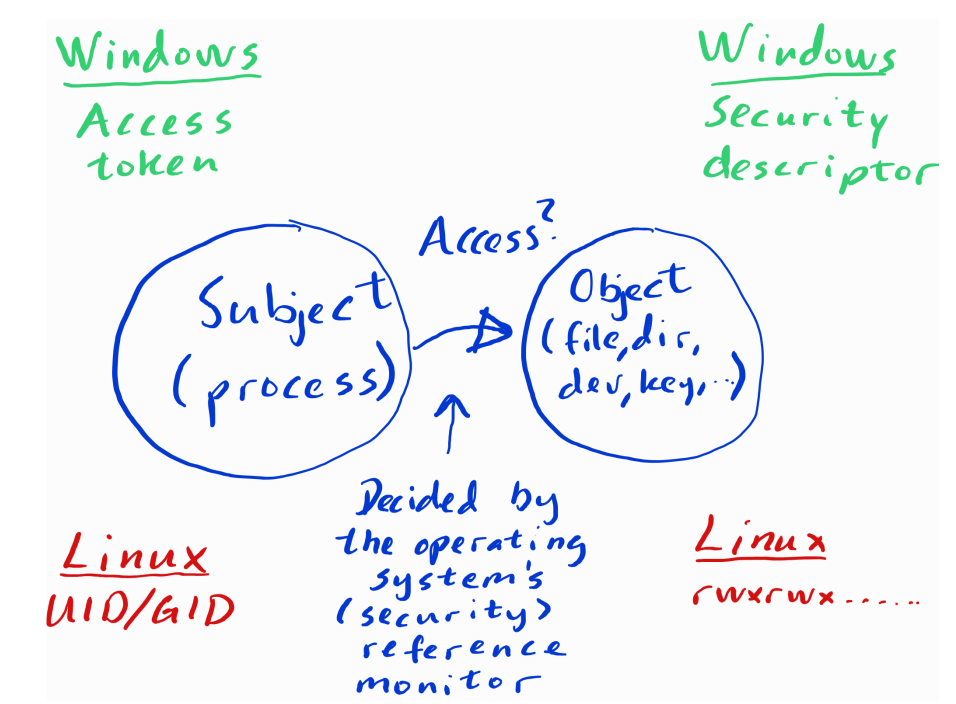 Windows
Access
token
Windows
Security
descriptor
Access?
Subject
(process)
Object
(file, dir,
dev, key, ...)
Decided by
the operating
system's
(security)
reference
monitor
Linux
UID/GID
Linux
rwxrwx.......